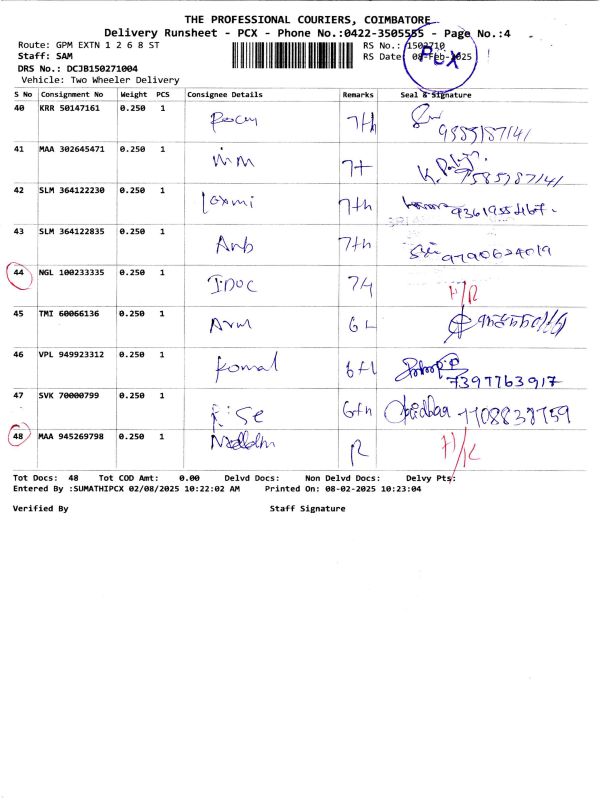 THE PROFESSIONAL COURIERS, COIMBATORE
Delivery Runsheet - PCX - Phone No.:0422-3505555 - Page No.:4
Route: GPM EXTN 1 2 6 8 ST RS No.: 1502710
Staff: SAM RS Date: 08-Feb-2025
PCX
DRS No.: DCJB150271004
Vehicle: Two Wheeler Delivery
S No Consignment No Weight PCS Consignee Details Remarks Seal & Signature
40 KRR 50147161 0.250 1 7th
41 MAA 302645471 0.250 1 7t
42 SLM 364122230 0.250 1 Laxmi 7th
43 SLM 364122835 0.250 1 7th 9790624019
44 NGL 100233335 0.250 1 IDOC
45 TMI 60066136 0.250 1
46 VPL 949923312 0.250 1 Komal 7397763917
47 SVK 70000799 0.250 1 6th
48 MAA 945269798 0.250 1 R
Tot Docs: 48 Tot COD Amt: 0.00 Delvd Docs: Non Delvd Docs: Delvy Pts:
Entered By :SUMATHIPCX 02/08/2025 10:22:02 AM Printed On: 08-02-2025 10:23:04
Verified By Staff Signature